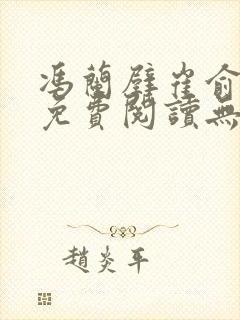 馮蘭孽崔俞
免費閱讀無
趙炎平